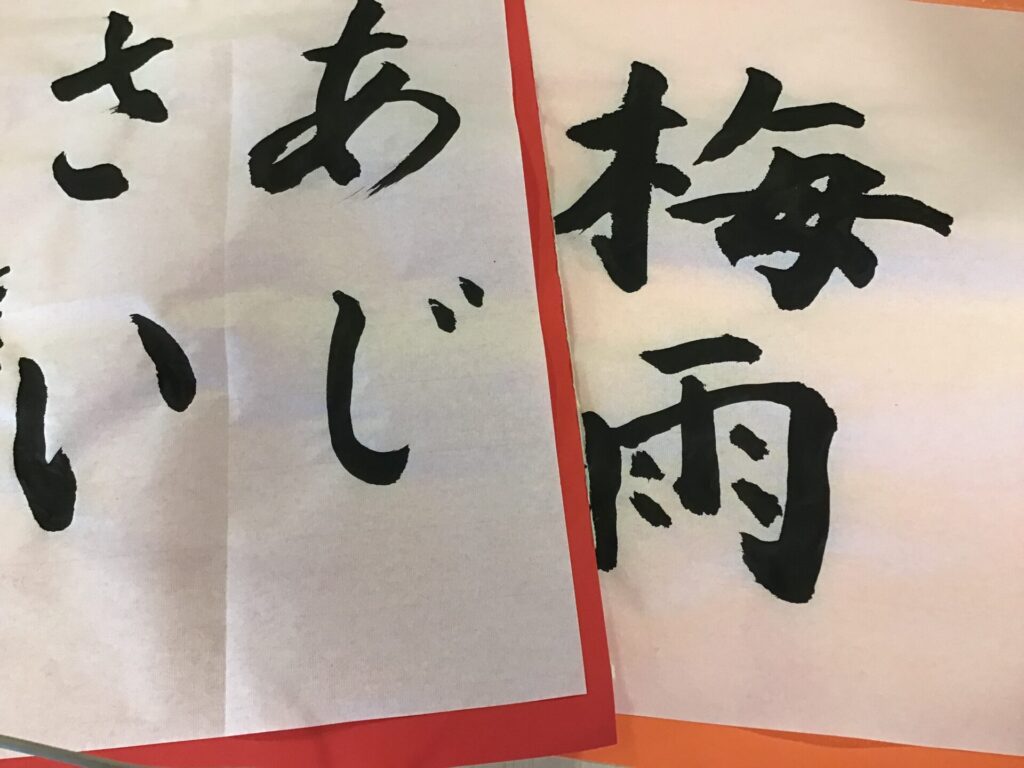 梅雨
あじ
さい